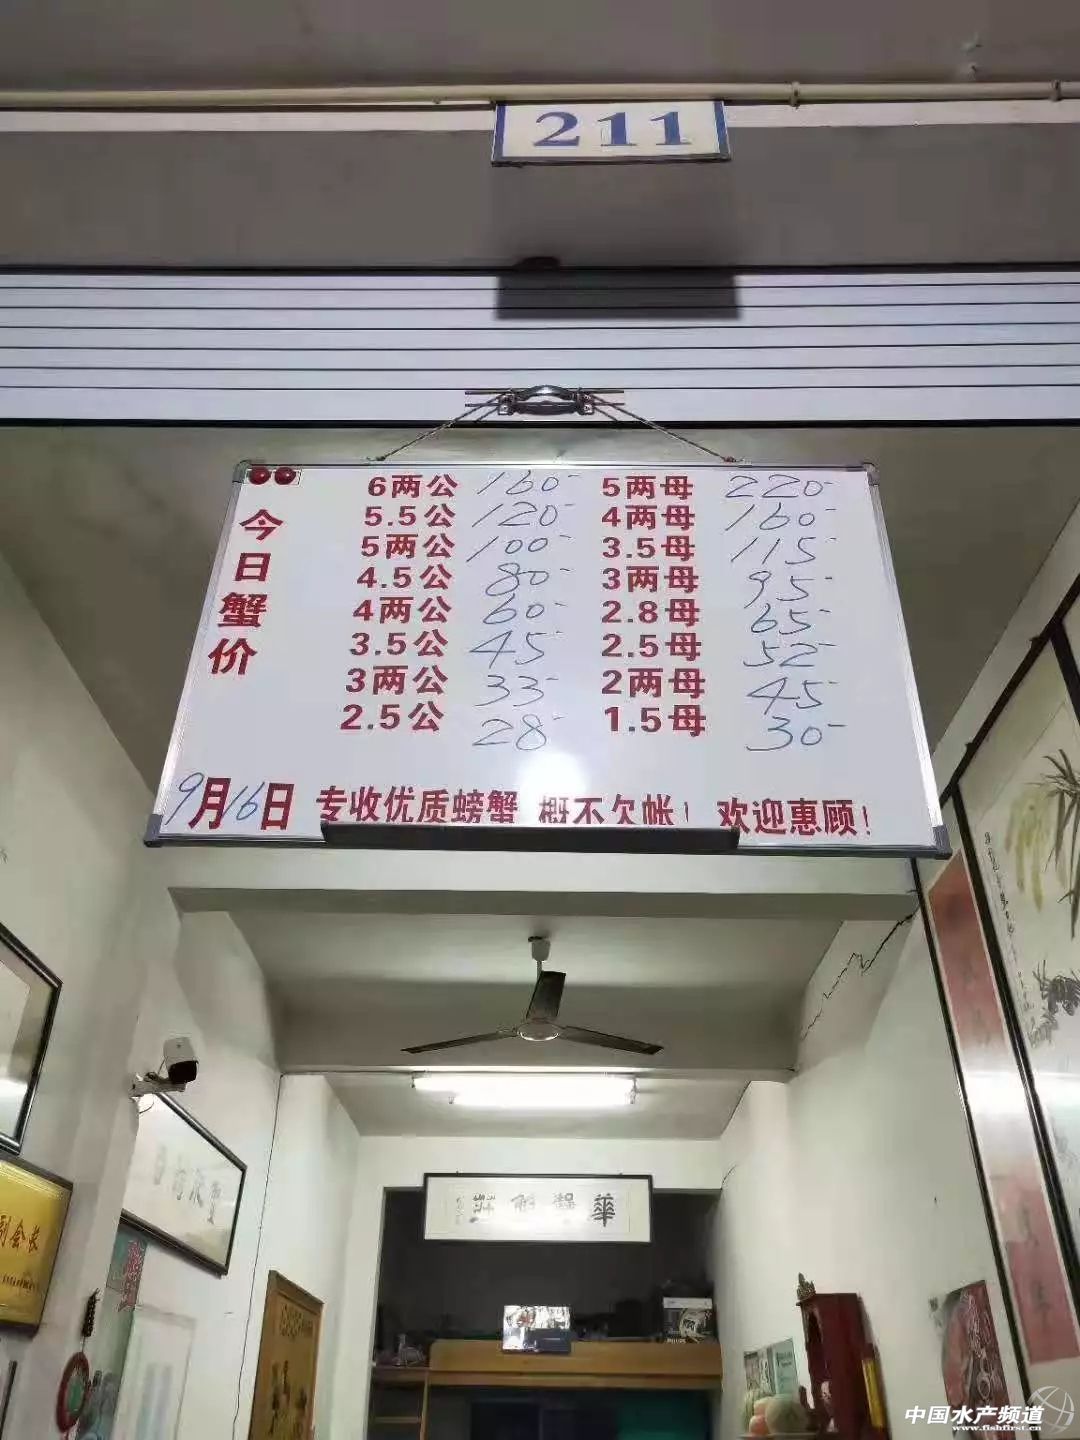 211
今日蟹价
6两公 160-
5.5公 120-
5两公 100-
4.5公 80-
4两公 60-
3.5公 45-
3两公 33-
2.5公 28-
5两母 220-
4两母 160-
3.5母 115-
3两母 95-
2.8母 65-
2.5母 52-
2两母 45-
1.5母 30-
9月16日 专收优质螃蟹 概不欠帐！ 欢迎惠顾！
副会长
中国水产频道
www.fishfirst.cn